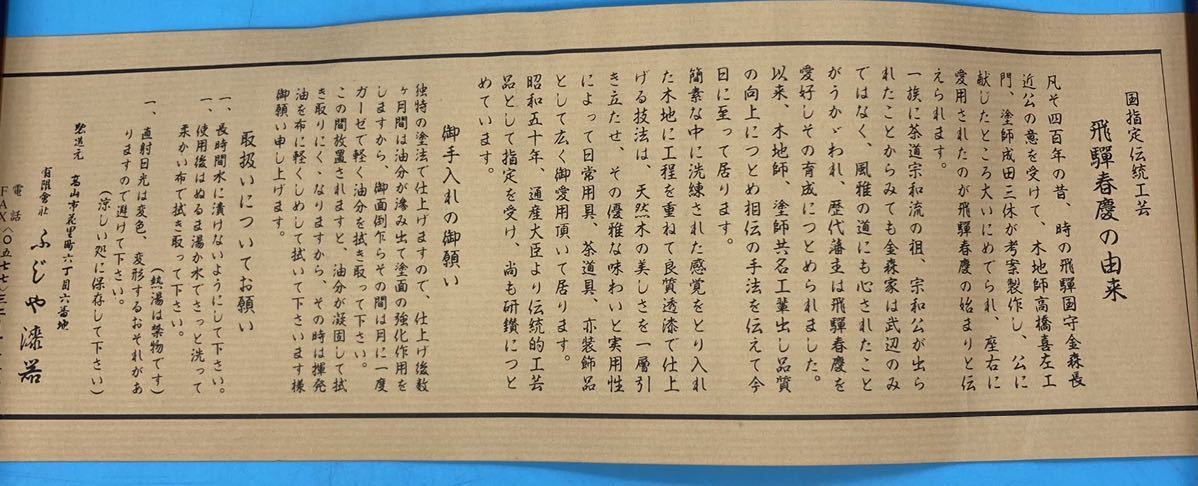 国指定伝統工芸
飛驒春慶の由来
凡そ四百年の昔、時の飛驒国守金森長
近公の意を受けて、木地師高橋喜左エ
門、塗師成田三休が考案製作し、公に
献じたところ大いにめでられ、座右に
愛用されたのが飛驒春慶の始まりと伝
えられます。
一族に茶道宗和流の祖、宗和公が出ら
れたことからみても金森家は武辺のみ
ではなく、風雅の道にも心されたこと
がうかゞわれ、歴代藩主は飛驒春慶を
愛好しその育成につとめられました。
以来、木地師、塗師共名工輩出し品質
の向上につとめ相伝の手法を伝えて今
日に至って居ります。
簡素な中に洗練された感覚をとり入れ
た木地に工程を重ねて良質透漆で仕上
げる技法は、天然木の美しさを一層引
き立たせ、その優雅な味わいと実用性
によって日常用具、茶道具、亦装飾品
として広く御愛用頂いて居ります。
昭和五十年、通産大臣より伝統的工芸
品として指定を受け、尚も研鑚につと
めています。
御手入れの御願い
独特の塗法で仕上げますので、仕上げ後数
ヶ月間は油分が滲み出て塗面の強化作用を
しますから、御面倒乍らその間は月に一度
ガーゼで軽く油分を拭き取って下さい。
この間放置されますと、油分が凝固して拭
き取りにくゝなりますから、その時は揮発
油を布に軽くしめして拭いて下さいます様
御願い申し上げます。
取扱いについてお願い
一、長時間水に漬けないようにして下さい。
一、使用後はぬるま湯か水でさっと洗って
柔かい布で拭き取って下さい。
(熱湯は禁物です)
一、直射日光は変色、変形するおそれがあ
りますので避けて下さい。
(涼しい処に保存して下さい)
製造元
高山市花里町六丁目六番地
有限会社 ふじや漆器
電話
FAX〈〇五七七〉三二